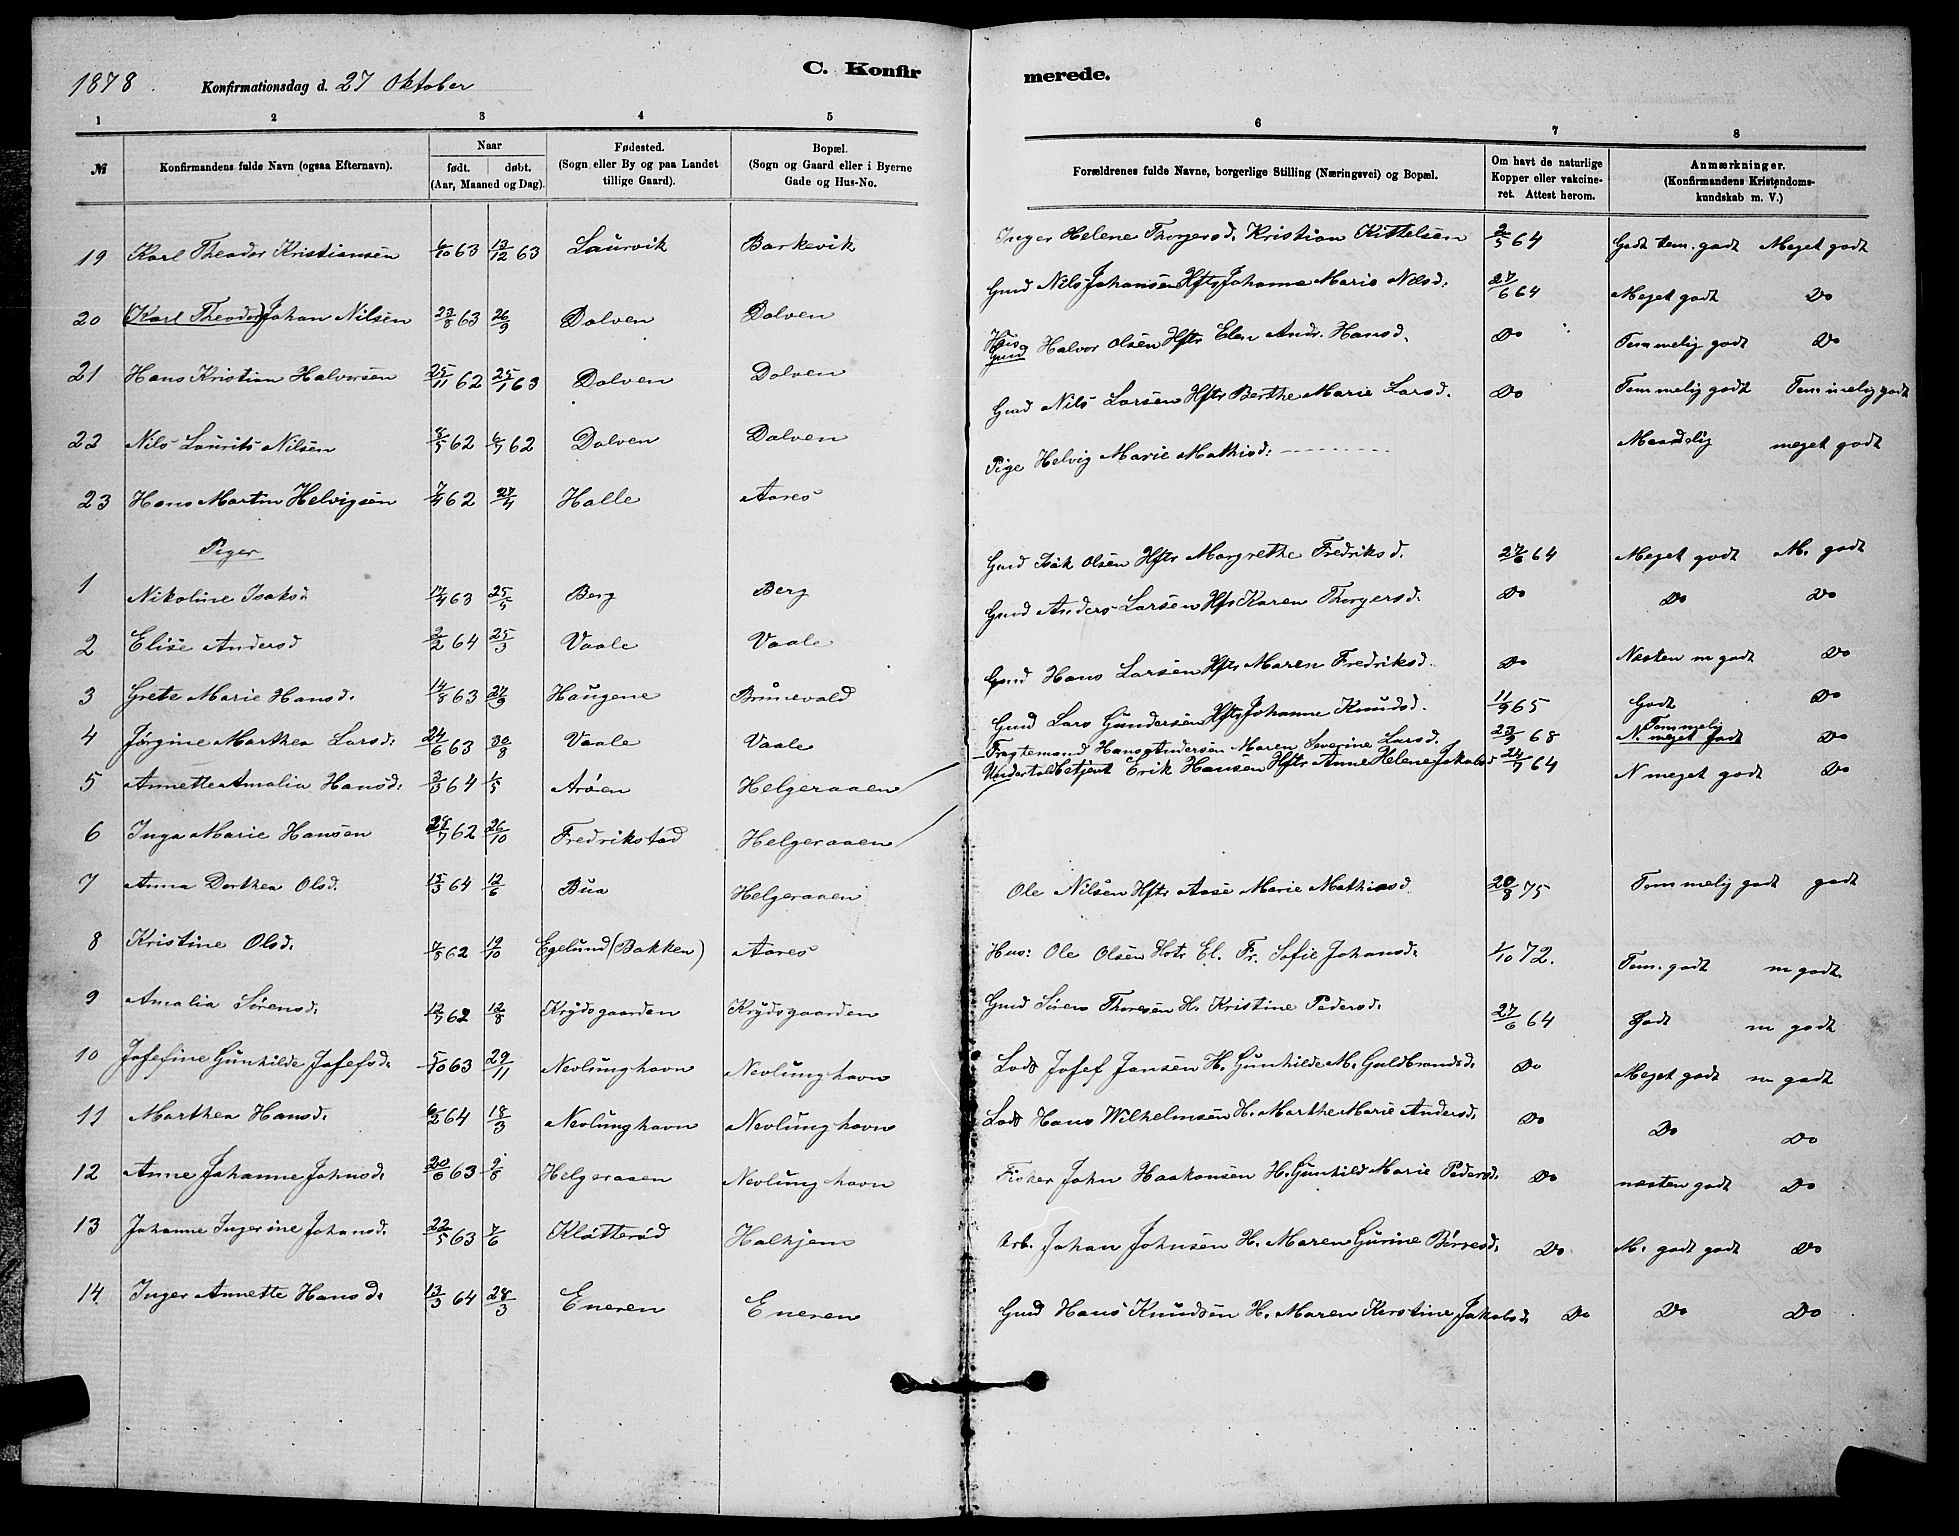 1878. Konfirmationsdag d. 27 Oktober
C. Konfirmerede.
1 2 3 4 5 6 7 8
№ Konfirmandens fulde Navn (ogsaa Efternavn). Naar født. døbt. (Aar, Maaned og Dag). Fødested. (Sogn eller By og paa Landet tillige Gaard). Bopæl. (Sogn og Gaard eller i Byerne Gade og Hus-No. Forældrenes fulde Navne, borgerlige Stilling (Næringsvei) og Bopæl. Om havt de naturlige Kopper eller vakcineret. Attest herom. Anmærkninger. (Konfirmandens Kristendomskundskab m. V.)
19 Karl Theodor Kristiansen 6/10 63 13/12 63 Laurvik Barkevik Inger Helene Thorgersd. Kristian Kittelsen 2/5 64 Godt tem. godt Meget godt
20 (Karl Theodor) Johan Nilsen 23/8 63 26/9 Dolven Dolven Gmd Nils Johansen Hfts Johanne Marie Nilsd. 27/6 64 Meget godt Do
21 Hans Kristian Halvorsen 25/11 62 25/1 63 Dolven Dolven Hus Gmd Halvor Olsen Hftr Elen Andr. Hansd. Do Temmelig godt Do
22 Nils Laurits Nilsen 8/5 62 6/7 62 Dolven Dolven Gmd Nils Larsen Hftr Berthe Marie Larsd. Do Temmelig godt Temmelig godt
23 Hans Martin Helvigsen 7/4 62 27/4 Halle Aares Pige Helvig Marie Mathisd: Maadelig meget godt
Piger
1 Nikoline Isaksd 17/4 63 25/5 Berg Berg Gmd Isak Olsen Hftr Margrethe Fredriksd. 27/6 64 Meget godt M. godt
2 Elise Andersd 2/2 64 25/3 Vaale Vaale Gmd Anders Larsen Hfr Karen Thorgersd. Do Do Do
3 Grete Marie Hansd. 14/8 63 27/9 Haugene Brunevald Gmd Hans Larsen Hftr Maren Fredriksd. Do Næsten m godt Do
4 Jørgine Marthea Larsd. 24/6 63 30/8 Vaale Vaale Gmd Lars Gundersen Hftr Johanne Knudsd. 11/9 65 Godt Do
5 Annette Amalia Hansd. 3/3 64 1/5 Arøen Helgeraaen Fragtemand Hans Andersen Maren Severine Larsd. 23/9 68 Temmelig N. meget godt Do
6 Inga Marie Hansen 28/7 62 26/10 Fredrikstad Helgeraaen Undertoldbetjent Erik Hansen Hftr Anne Helene Jakobsd 24/7 64 N meget godt Do
7 Anna Dorthea Olsd. 15/3 64 12/6 Bua Helgeraaen Ole Nilsen Hftr Aase Marie Mathiasd. 20/8 75 Temmelig godt godt
8 Kristine Olsd. 7/8 62 19/10 Egelund (Bakken) Aares Hus: Ole Olsen Hstr El. Fr. Sofie Johansd. 1/10 72. Tem. godt m godt
9 Amalia Sørensd. 12/7 62 12/8 Krydsgaarden Krydsgaarden Gmd Søren Thoresen H. Kristine Pedersd. 27/6 64 Godt m godt
10 Josefine Gunhilde Josefsd. 5/10 63 29/11 Nevlunghavn Nevlunghavn Lods Josef Jansen H. Gunhilde M. Guldbrandsd. Do Meget godt m godt
11 Marthea Hansd. 6/2 64 18/3 Nevlunghavn Nevlunghavn Lods Hans Wilhelmsen H. Marthe Marie Andersd. Do Do Do
12 Anne Johanne Johnsd. 20/6 63 9/8 Helgeraaen Nevlunghavn Fisker John Haakonsen H. Gunhild Marie Pedersd. Do næsten godt Do
13 Johanne Ingerine Johansd. 22/5 63 7/6 Klatterød Halhjem Arb. Johan Johnsen H. Maren Gurine Børresd. Do M. godt godt Do
14. Inger Annette Hansd. 13/3 64 28/3 Eneren Eneren Gmd Hans Knudsen H. Maren Kirstine Jakobsd. Do Do Do